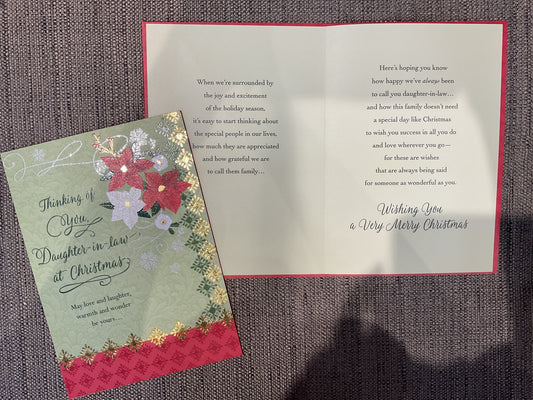 Thinking of
You,
Daughter-in-law
at Christmas
May love and laughter,
warmth and wonder
be yours…
When we're surrounded by
the joy and excitement
of the holiday season,
it's easy to start thinking about
the special people in our lives,
how much they are appreciated
and how grateful we are
to call them family…
Here's hoping you know
how happy we've always been
to call you daughter-in-law…
and how this family doesn't need
a special day like Christmas
to wish you success in all you do
and love wherever you go—
for these are wishes
that are always being said
for someone as wonderful as you.
Wishing You
a Very Merry Christmas